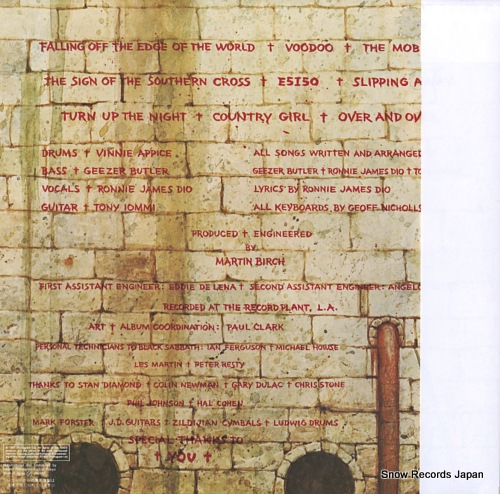 FALLING OFF THE EDGE OF THE WORLD † VOODOO † THE MOB
THE SIGN OF THE SOUTHERN CROSS † E5150 † SLIPPING A
TURN UP THE NIGHT † COUNTRY GIRL † OVER AND OV
DRUMS † VINNIE APPICE
BASS † GEEZER BUTLER
VOCALS † RONNIE JAMES DIO
GUITAR † TONY IOMMI
ALL SONGS WRITTEN AND ARRANGED
GEEZER BUTLER † RONNIE JAMES DIO † TO
LYRICS BY RONNIE JAMES DIO
ALL KEYBOARDS BY GEOFF NICHOLLS
PRODUCED † ENGINEERED
BY
MARTIN BIRCH
FIRST ASSISTANT ENGINEER: EDDIE DE LENA † SECOND ASSISTANT ENGINEER: ANGELO
RECORDED AT THE RECORD PLANT, L.A.
ART † ALBUM COORDINATION: PAUL CLARK
PERSONAL TECHNICIANS TO BLACK SABBATH: IAN FERGUSON † MICHAEL HOWSE
LES MARTIN † PETER RESTY
THANKS TO STAN DIAMOND † COLIN NEWMAN † GARY DULAC † CHRIS STONE
PHIL JOHNSON † HAL COHEN
MARK FORSTER † J.D. GUITARS † ZILDJIAN CYMBALS † LUDWIG DRUMS
SPECIAL THANKS TO
† YOU †
Snow Records Japan